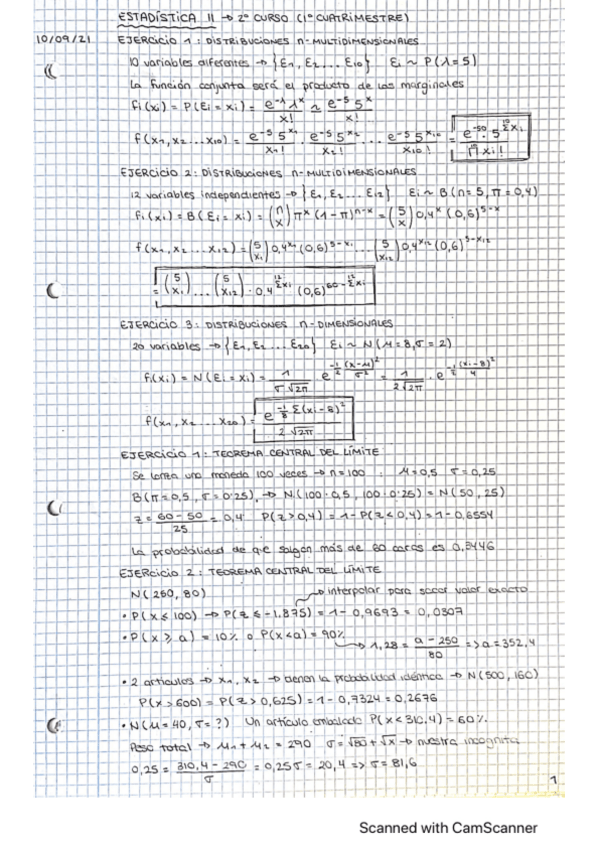 ESTADÍSTICA II → 2º CURSO (1º CUATRIMESTRE)
10/09/21 EJERCICIO 1: DISTRIBUCIONES n-MULTIDIMENSIONALES
10 variables diferentes → {E1, E2 ... E10} Ei ~ P(λ=5)
La función conjunta será el producto de las marginales
fi(xi) = P(Ei = xi) = e^-λ λ^x / x! ≃ e^-5 5^x / x!
f(x1, x2 ... x10) = e^-5 5^x1 / x1! · e^-5 5^x2 / x2! · ... · e^-5 5^x10 / x10! = e^-50 · 5^Σxi / Π xi!
EJERCICIO 2: DISTRIBUCIONES n-MULTIDIMENSIONALES
12 variables independientes → {E1, E2 ... E12} Ei ~ B(n=5, π=0,4)
fi(xi) = B(Ei = xi) = (n x) π^x (1-π)^n-x = (5 x) 0,4^x (0,6)^5-x
f(x1, x2 ... x12) = (5 x1) 0,4^x1 (0,6)^5-x1 ... (5 x12) 0,4^x12 (0,6)^5-x12
= (5 x1) ... (5 x12) · 0,4^Σxi (0,6)^60-Σxi
EJERCICIO 3: DISTRIBUCIONES n-DIMENSIONALES
20 variables → {E1, E2 ... E20} Ei ~ N(μ=8, σ=2)
f(xi) = N(Ei = xi) = 1 / σ√2π e^-1/2 (x-μ)²/σ² = 1 / 2√2π · e^-1/2 (xi-8)²/4
f(x1, x2 ... x20) = e^-1/8 Σ(xi-8)² / 2√2π
EJERCICIO 1: TEOREMA CENTRAL DEL LÍMITE
Se lanza una moneda 100 veces → n=100 μ=0,5 σ=0,25
B(π=0,5, σ=0,25), → N(100·0,5, 100·0,25) = N(50, 25)
z = 60-50 / 25 = 0,4 P(z>0,4) = 1-P(z<0,4) = 1-0,6554
La probabilidad de que salgan más de 60 caras es 0,3446
EJERCICIO 2: TEOREMA CENTRAL DEL LÍMITE
N(250, 80) → interpolar para sacar valor exacto
• P(x ≤ 100) → P(z ≤ -1,875) = 1-0,9693 = 0,0307
• P(x ≥ a) = 10% o P(x<a) = 90%
→ 1,28 = a-250 / 80 => a = 352,4
• 2 artículos → x1, x2 → tienen la probabilidad idéntica → N(500, 160)
P(x>600) = P(z>0,625) = 1-0,7324 = 0,2676
• N(μ=40, σ=?) Un artículo embalado P(x<310,4) = 60%
Peso total → μ1+μ2 = 290 σ=√80+√x → nuestra incógnita
0,25 = 310,4-290 / σ = 0,25σ = 20,4 => σ = 81,6
1
Scanned with CamScanner